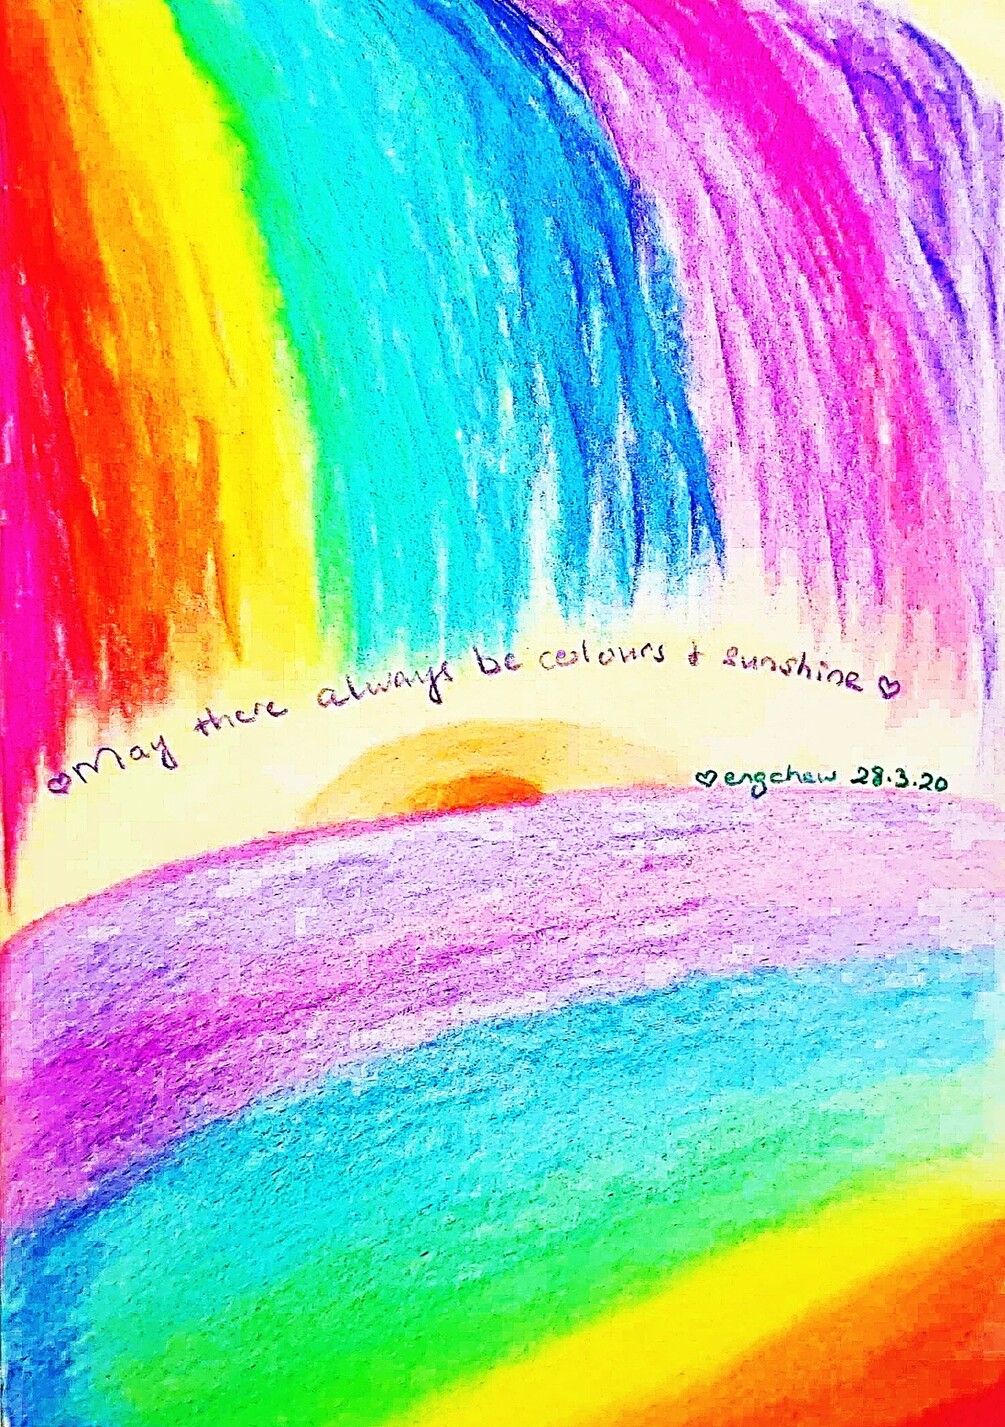 ♡May there always be colours + sunshine♡
♡engchew 28.3.20